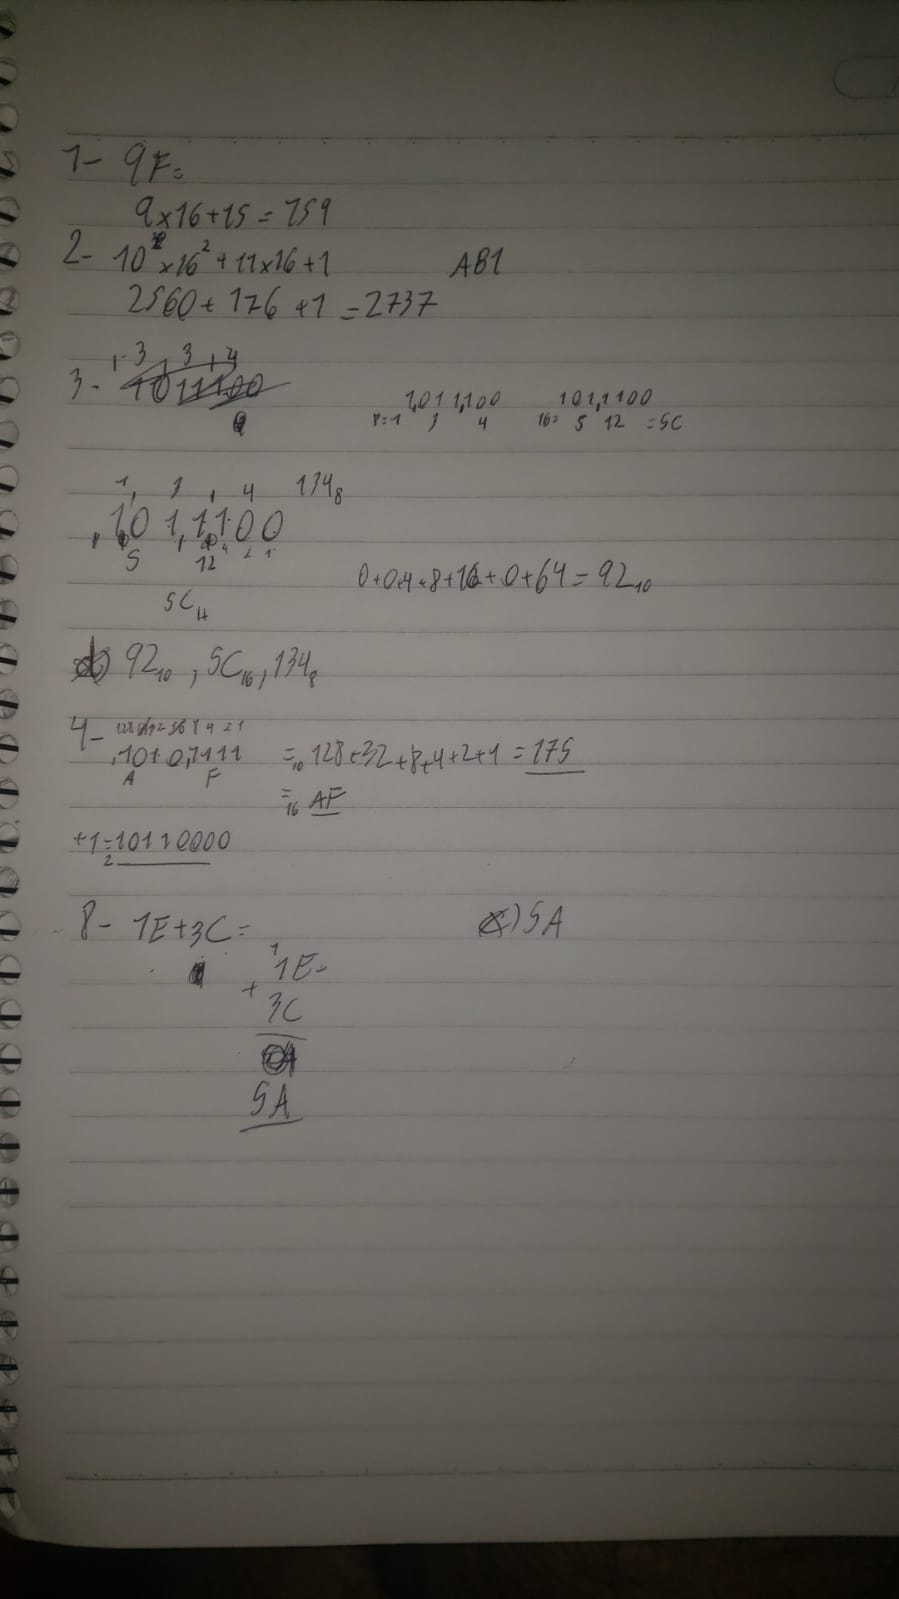 1- 9F=
9x16+15=159
2- 10x16²+11x16+1 AB1
2560+176+1=2737
1 3, 3, 4
3- 1011100
1,011,100 101,1100
8=1 3 4 16= 5 12 =5C
1, 3, 4 134₈
,101,1100
5 12
0+0+4+8+16+0+64=92₁₀
5C
d) 92₁₀, 5C₁₆, 134₈
4-
,1010,1111 =₁₀128+32+8+4+2+1=175
A F
=₁₆ AF
+1=₂10110000
8- 1E+3C= c) 5A
1
1E
+
3C
5A